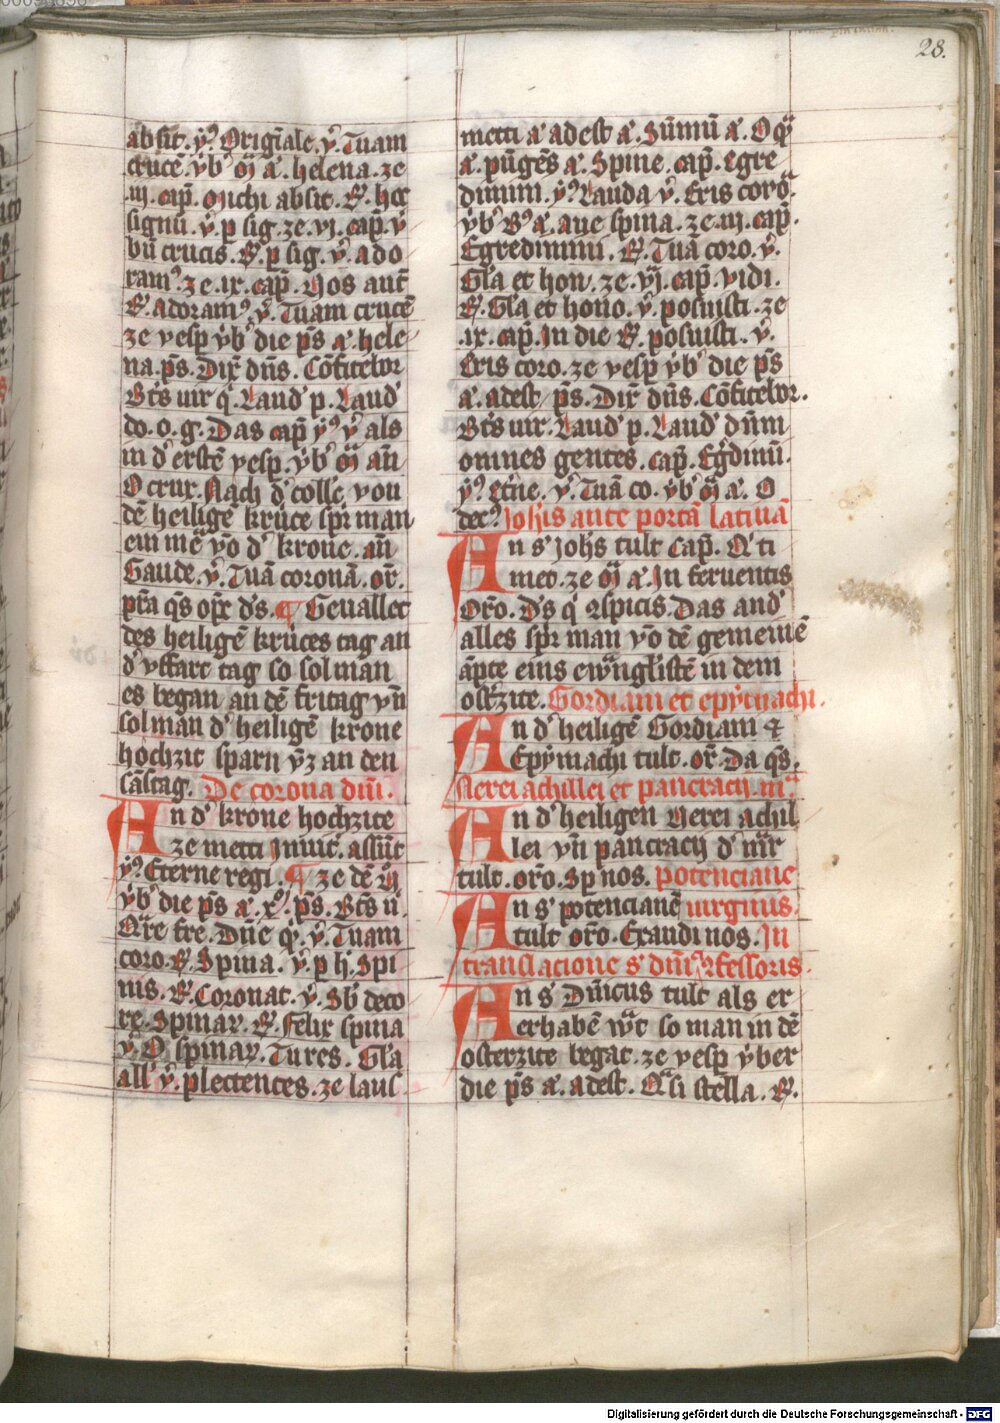 28.
absit. ẏ᷒ Origīale. ẏ. Tuam
crucē. ẏb͛ oı̄ a̅. helena. ze
.iij. cap̄. Michi absit. ℟. hoc
signū. ẏ. p sig. ze. vj. cap̄. ẏ
bū crucis. ℟. p sig. ẏ. ado
ram᷒. ze .ix. cap̄. Nos aut̄
℟. adoram᷒. ẏ. Tuam crucē
ze vesp ẏb͛ die ps̄ a̅. hele
na. ps̄. Dix̄ dn̄s. Cōfitebor
Bt̄s uir q̄. Laud͛ p. Laud͛
do. o. g. Das cap̄ ẏ᷒ ẏ als
in d͛ erstē vesp. ẏb͛ oı̄ an̄
O crux. Nach d͛ colle. von
dē heiligē krúce spr̄ man
ein mē vō d͛ krone. an̄
Gaude. ẏ. Tuā coronā. or̄.
pr̄a qs̄ op̄x ds̄. ¶ Geuallet
des heiligē krúces tag an
d͛ vffart tag so sol man
es began an dē fritag vn̄
sol man d͛ heiligē krone
hochzit sparn ṽz an den
sāstag. De corona dn̄i.
An d͛ krone hochzite
ze metti Inuit. assūt
ẏ᷒ Eterne regi. ¶ ze dē ij
ẏb͛ die ps̄ a̅. xp̄. ps̄. Bt̄s ū.
Q̄re fre. Dn̄e q̄. ẏ. Tuam
coro. ℟. Spina. ẏ. p h̄. Spi
nis. ℟. Coronat. ẏ. Sb͛ deco
re. Spinar. ℟. Felix spina
ẏ. O spinar. Tures. Gl̄a
all͛ ẏ. plectentes. ze laus
metti a̅ adest a̅. Sūmū a̅. O q̄
a̅. pūgēs a̅. Spine. cap̄. Egre
dimini. ẏ᷒ Lauda ẏ. Eris corō.
ẏb͛ B᷒ a̅. aue spina. ze .iij. cap̄.
Egredimini. ℟. Tuā coro. ẏ.
Gl̄a et hon. ze. vj. cap̄. vidi.
℟. Gl̄a et hono. ẏ. posuisti. ze
.ix. cap̄. In die ℟. posuisti. ẏ.
Eris coro. ze vesp ẏb͛ die ps̄
a̅. adest ps̄. Dix̄ dn̄s. Cōfitebor.
Bt̄s uir. Laud͛ p. Laud͛ dn̄m
omnes gentes. cap̄. Egdīnū.
ẏ᷒. Et̄ne. ẏ. Tuā co. ẏb͛ oı̄ a̅. O
dec᷒. Joh̄is ante portā latinā
An s͛ joh̄s tult Cap̄. Q̄ ti
met. ze oı̄ a̅ In feruentis
Orō. Ds̄ q͛ ꝯspicis. Das and͛
alles spr̄ man vō dē gemeinē
āpte eins ewāglistē in dem
ost͛zite. Gordiani et epẏmachi.
An d͛ heiligē Gordiani ⁊
Epẏmachi tult. or̄. Da qs̄.
Nerei achillei et pancracij. m̄.
An d͛ heiligen Nerei achil
lei vn̄ pancracij d͛ m̄r
tult. orō. Sp̄ nos. potenciane
An s͛ potencianē uirginis.
tult orō. Exaudi nos. In
translacione s͛ dn̄i ꝯfessoris.
An s͛ Dn̄icus tult als er
erhabē w͛t so man in dē
osterzite begat. ze vesp ẏber
die ps̄ a̅. adest. Q̄si stella. ℟.
Digitalisierung gefördert durch die Deutsche Forschungsgemeinschaft - DFG